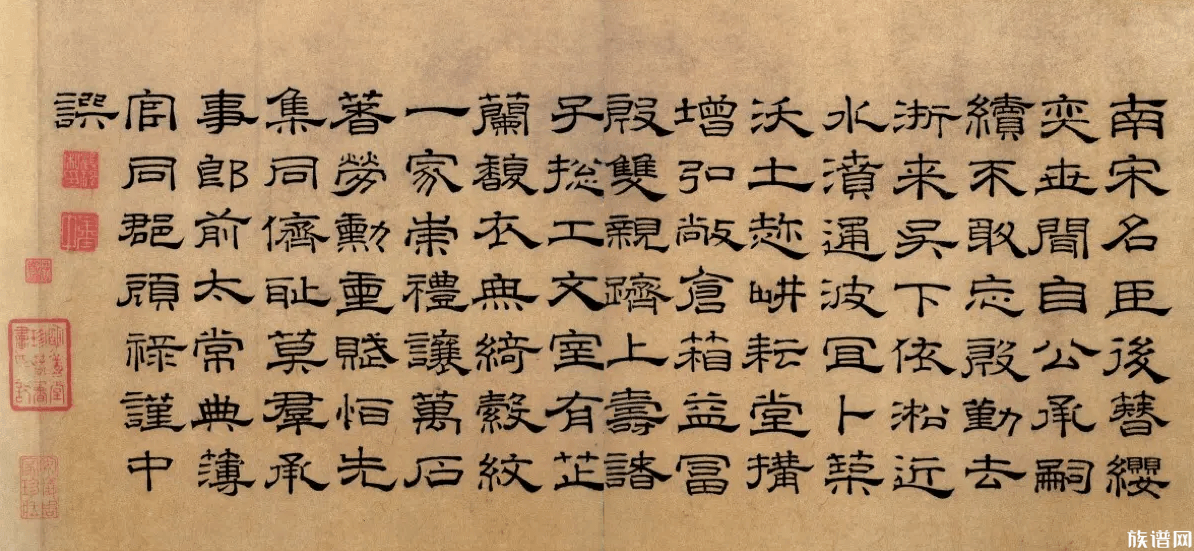 南宋名臣後簪纓
奕世間自公承嗣
續不敢忘殷勤去
浙来吴下依淞近
水濆通波冝卜築
沃土菑畊耘堂搆
增弘敞倉箱益冨
殷雙親躋上壽諸
子揔工文室有芷
蘭馥衣無綺縠紋
一家崇禮讓萬石
著勞勳重賦怕先
集同儕耻莫羣承
事郎前太常典簿
官同郡顧禄謹中
譔
族谱网